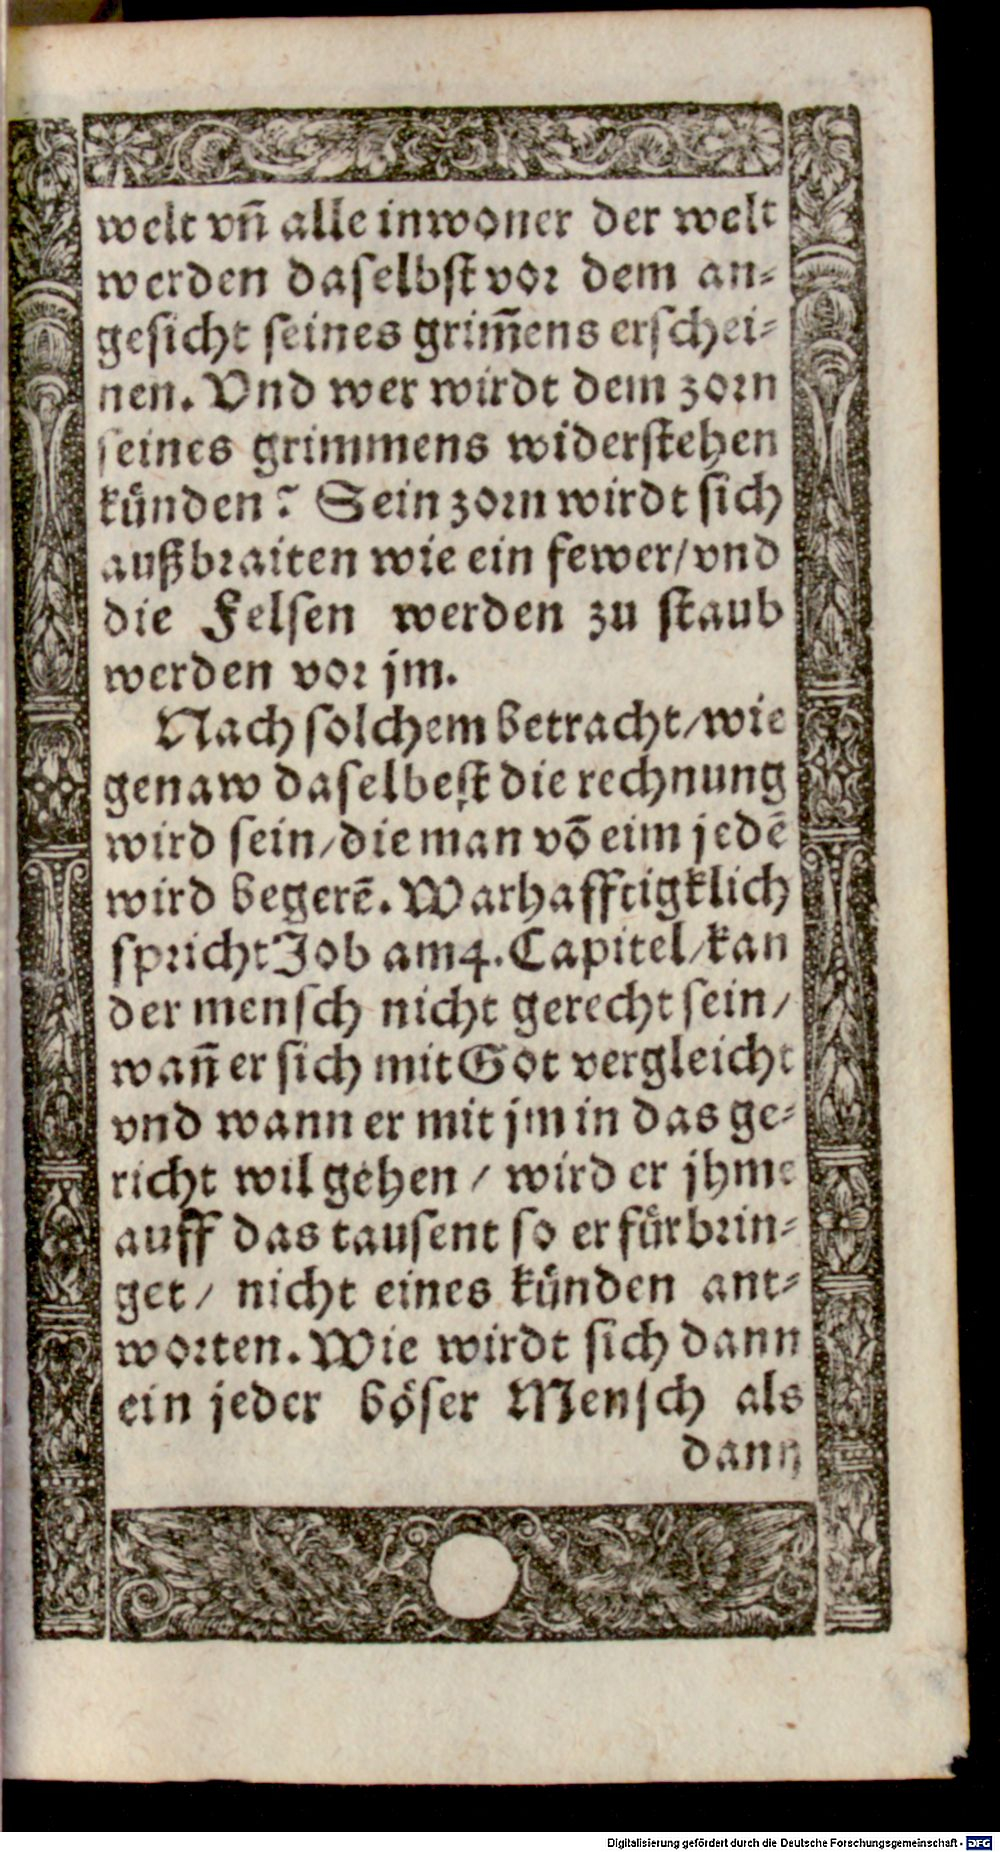 welt vn̄ alle inwoner der welt
werden daselbst vor dem an-
gesicht seines grim̄ens erschei-
nen. Vnd wer wirdt dem zorn
seines grimmens widerstehen
künden? Sein zorn wirdt sich
außbraiten wie ein fewer/vnd
die Felsen werden zu staub
werden vor jm.
Nach solchem betracht/wie
genaw daselbest die rechnung
wird sein/die man vō eim jedē
wird begerē. Warhafftigklich
spricht Job am 4. Capitel/kan
der mensch nicht gerecht sein/
wan̄ er sich mit Got vergleicht
vnd wann er mit jm in das ge-
richt wil gehen / wird er jhme
auff das tausent so er fürbrin-
get/ nicht eines künden ant-
worten. Wie wirdt sich dann
ein jeder böser Mensch als
dann
Digitalisierung gefördert durch die Deutsche Forschungsgemeinschaft - DFG